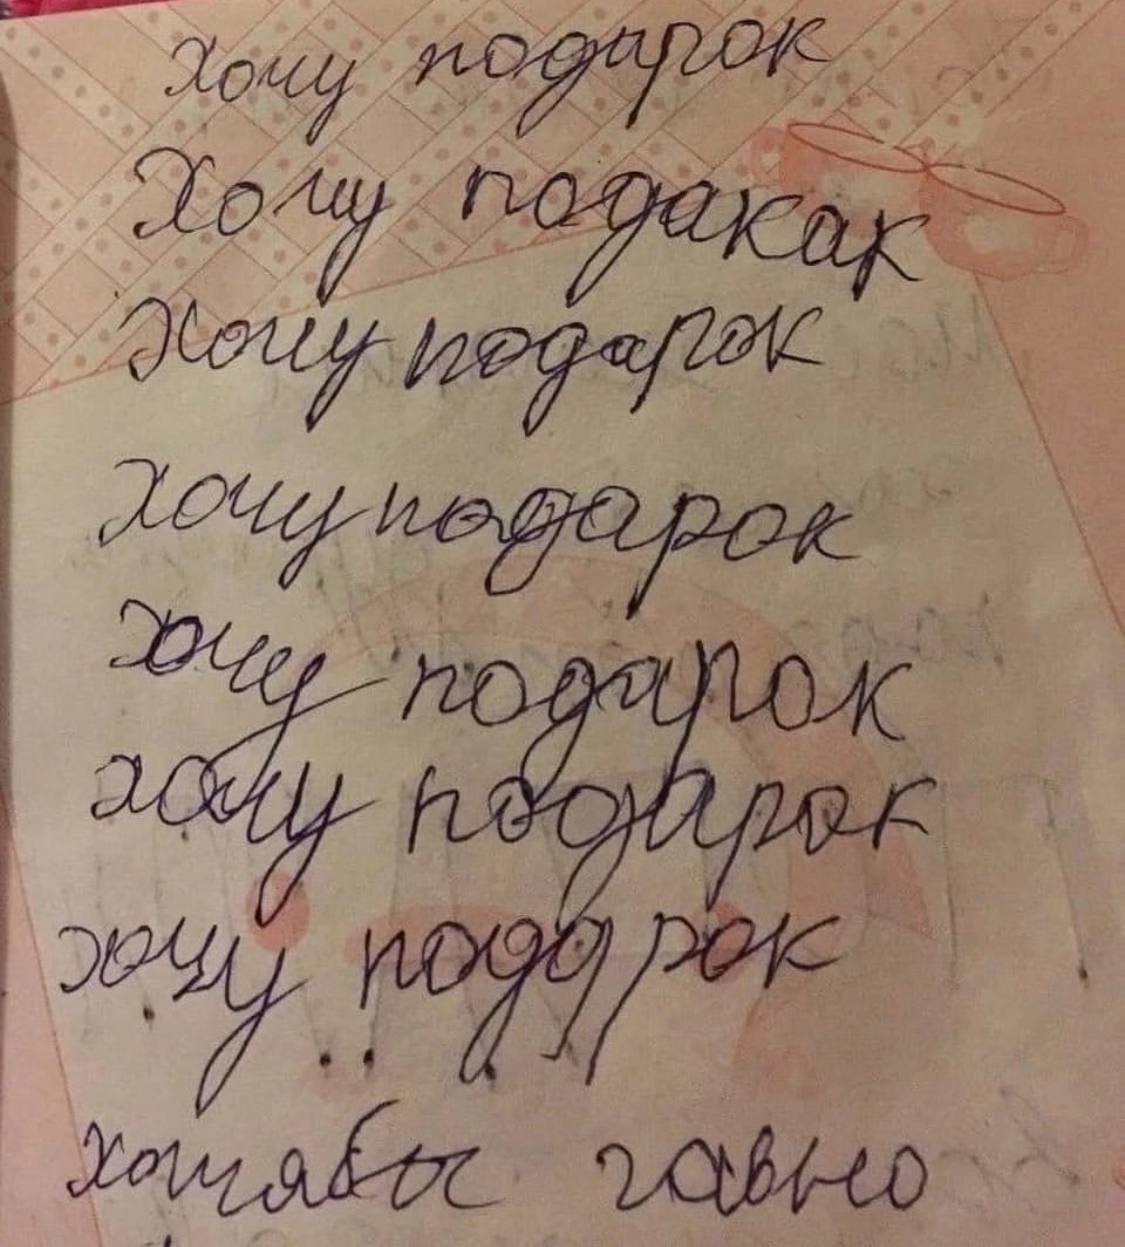 Хочу подарок
Хочу подакак
Хочу подарок
Хочу подарок
хочу подарок
хочу подарок
хочу подарок
хотябы гавно